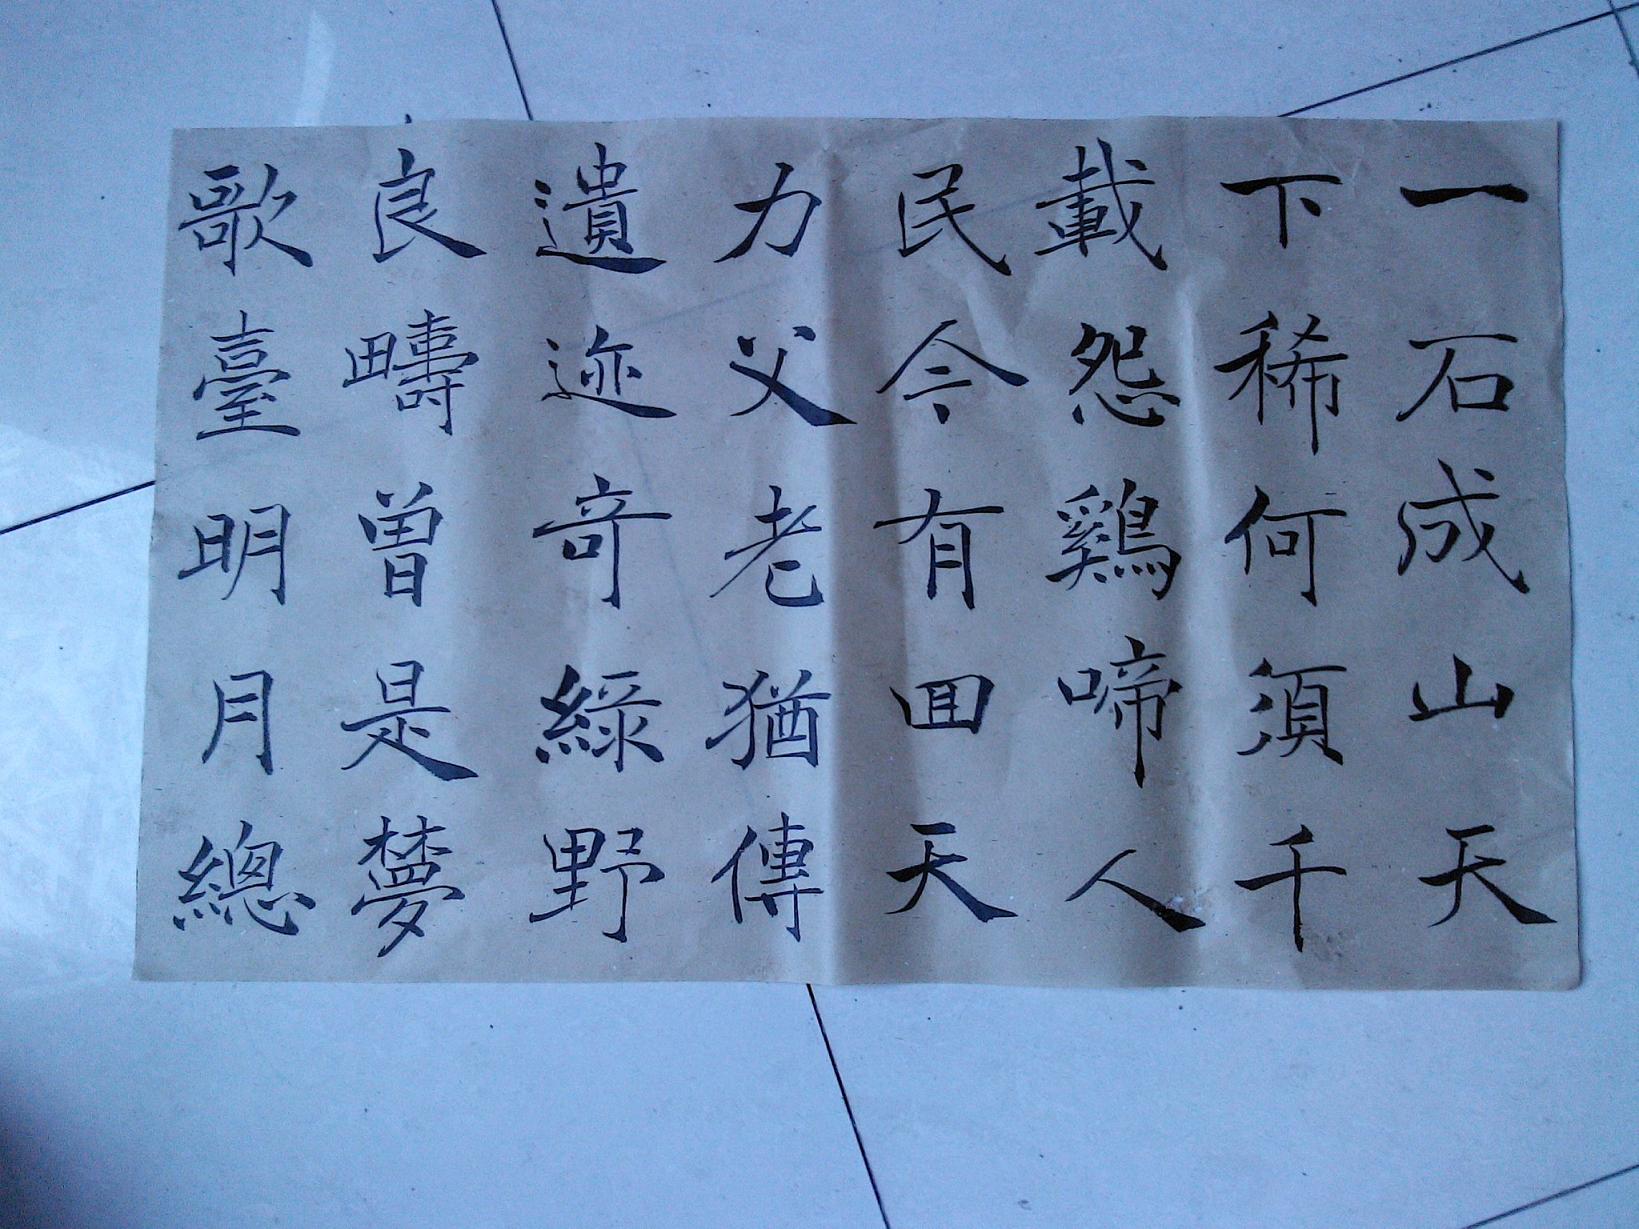 一石成山天
下稀何須千
載怨鷄啼人
民今有回天
力父老猶傳
遺迹奇綠野
良疇曾是夢
歌臺明月總